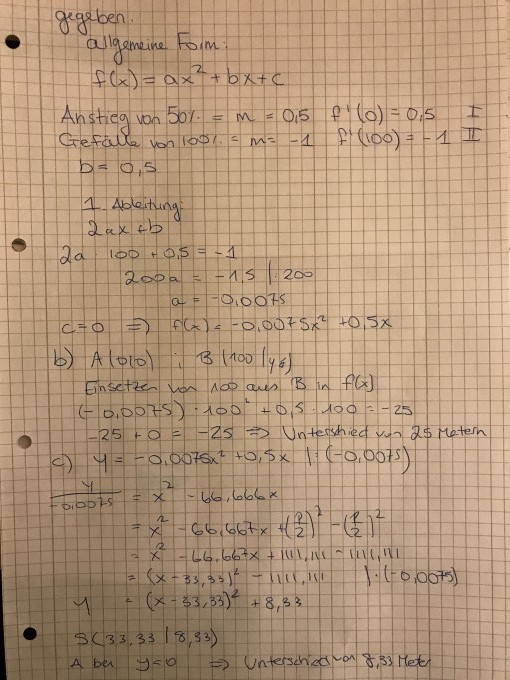 gegeben:
allgemeine Form:
f(x) = ax² + bx + c
Anstieg von 50% = m = 0,5 f'(0) = 0,5 I
Gefälle von 100% = m = -1 f'(100) = -1 II
b = 0,5
1. Ableitung:
2ax + b
2a 100 + 0,5 = -1
200a = -1,5 | : 200
a = -0,0075
c = 0 ⇒ f(x) = -0,0075x² + 0,5x
b) A(0|0) ; B(100|yB)
Einsetzen von 100 aus B in f(x)
(-0,0075) · 100² + 0,5 · 100 = -25
-25 + 0 = -25 ⇒ Unterschied von 25 Metern
c) y = -0,0075x² + 0,5x | : (-0,0075)
y/-0,0075 = x² - 66,666x
= x² - 66,667x + (p/2)² - (p/2)²
= x² - 66,667x + 1111,111 - 1111,111
= (x - 33,33)² - 1111,111 | · (-0,0075)
y = (x - 33,33)² + 8,33
S(33,33 | 8,33)
A bei y = 0 ⇒ Unterschied von 8,33 Meter